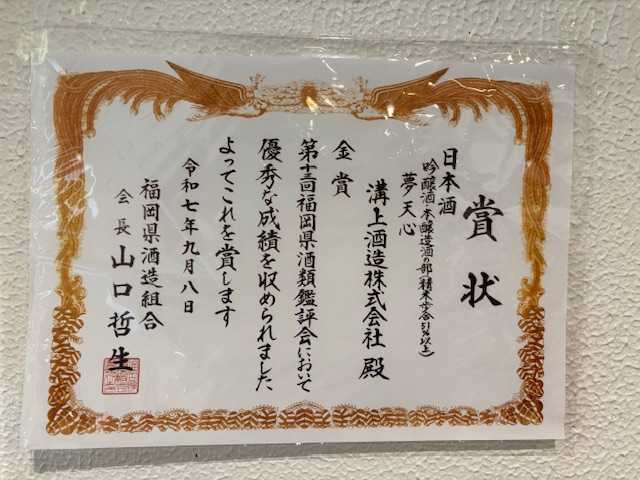 賞状
日本酒
吟醸酒・本醸造酒の部(精米歩合51%以上)
夢天心
溝上酒造株式会社 殿
金賞
第十三回福岡県酒類鑑評会において
優秀な成績を収められました
よってこれを賞します
令和七年九月八日
福岡県酒造組合
会長 山口哲生